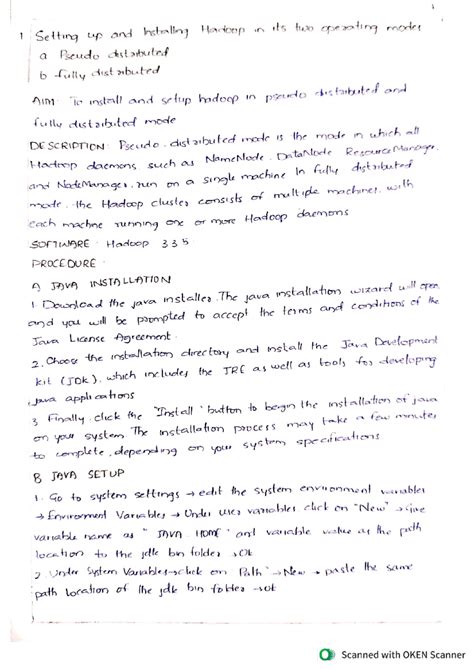 1 Setting up and Installing Hadoop in its two operating modes
a Pseudo distributed
b fully distributed
AIM: To install and setup hadoop in pseudo distributed and
fully distributed mode
DESCRIPTION: Pseudo-distributed mode is the mode in which all
Hadoop daemons such as NameNode, DataNode ResourceManager,
and NodeManager, run on a single machine In fully distributed
mode, the Hadoop cluster consists of multiple machines, with
each machine running one or more Hadoop daemons
SOFTWARE: Hadoop 3.3.5
PROCEDURE:
A JAVA INSTALLATION
1. Download the java installer. The java installation wizard will open
and you will be prompted to accept the terms and conditions of the
Java License Agreement.
2. Choose the installation directory and install the Java Development
kit (JDK), which includes the JRE as well as tools for developing
java applications
3. Finally, click the "Install" button to begin the installation of java
on your system. The installation process may take a few minutes
to complete, depending on your system specifications
B JAVA SETUP
1. Go to system settings → edit the system environment variables
→ Environment Variables → Under user variables click on "New" → Give
variable name as "JAVA_HOME" and variable value as the path
location to the jdk bin folder → Ok
2. Under System Variables → click on "Path" → New → paste the same
path location of the jdk bin folder → ok
Scanned with OKEN Scanner